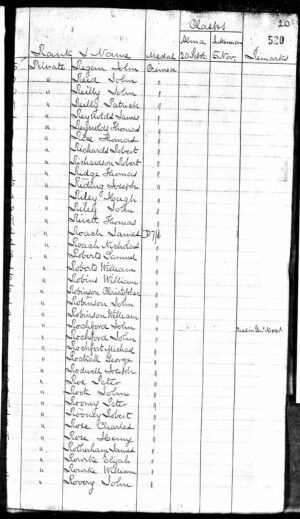 20
Clasps
529
Alma Inkerman
Rank & Name Medal 20 Sept. 5 Nov. Remarks
Private Regan John Crimea
" Reid John "
" Reilly John "
" Reilly Patrick "
" Reynolds James "
" Reynolds Thomas "
" Rice Thomas "
" Richards Robert "
" Richardson Robert "
" Ridge Thomas "
" Riding Joseph "
" Riley Hugh "
" Riley John "
" Rivett Thomas "
" Roach James "
" Roach Nicholas "
" Roberts Samuel "
" Roberts William "
" Robins William "
" Robinson Christopher "
" Robinson John "
" Robinson William "
" Rochford John "
" Rochford John "
" Rochfort Michael "
" George "
" Rodwell Joseph "
" Roe Peter "
" Rook John "
" Rooney Peter "
" Rooney Robert "
" Rose Charles "
" Rose Henry "
" Rotherham James "
" Rourke Elijah "
" Rourke William "
" Rovery John "